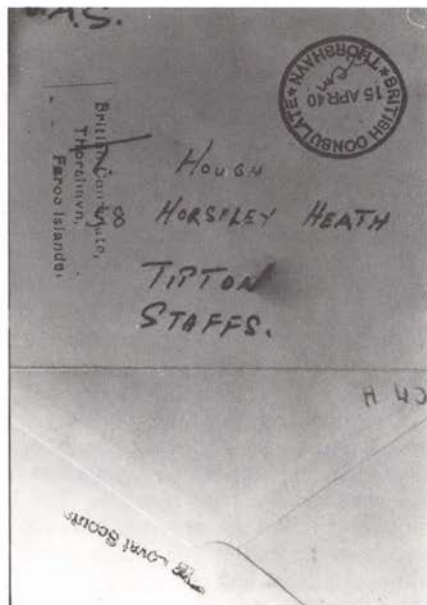 BRITISH CONSULATE * THORSHAVN *
15 APR 40
British Consulate,
Thorshavn,
Faroe Islands.
HOUGH
58 HORSELEY HEATH
TIPTON
STAFFS.
Lovat Scouts